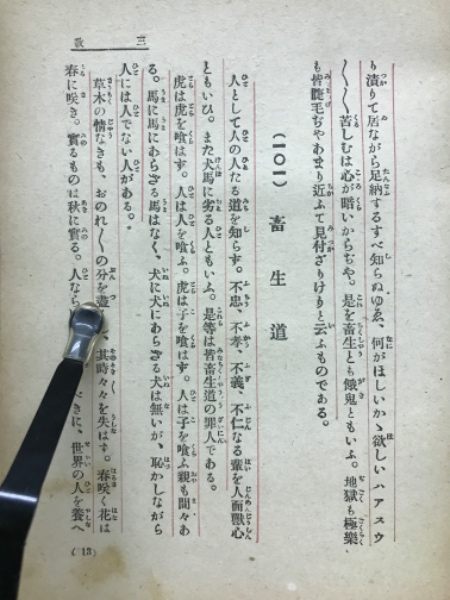 三教
り漬りて居ながら足納するすべ知らぬゆゑ、何がほしいかゝ欲しいハアスウ
〱〱苦しむは心が暗いからぢや。是を畜生とも餓鬼ともいふ。地獄も極樂
も皆睫毛ぢやあまり近ふて見付ざりけりと云ふものである。
(一〇一) 畜生道
人として人の人たる道を知らず。不忠、不孝、不義、不仁なる輩を人面獸心
ともいひ。また犬馬に劣る人ともいふ。是等は皆畜生道の罪人である。
虎は虎を喰はず。人は人を喰ふ。虎は子を喰はず。人は子を喰ふ親も間々あ
る。馬に馬にあらざる馬はなく、犬に犬にあらざる犬は無いが、恥かしながら
人には人でない人がある。
草木の情なきも、おのれ〱の分を盡、其時々々を失はず。春咲く花は
春に咲き。實るものは秋に實る。人ならべきに、世界の人を養へ
(13)